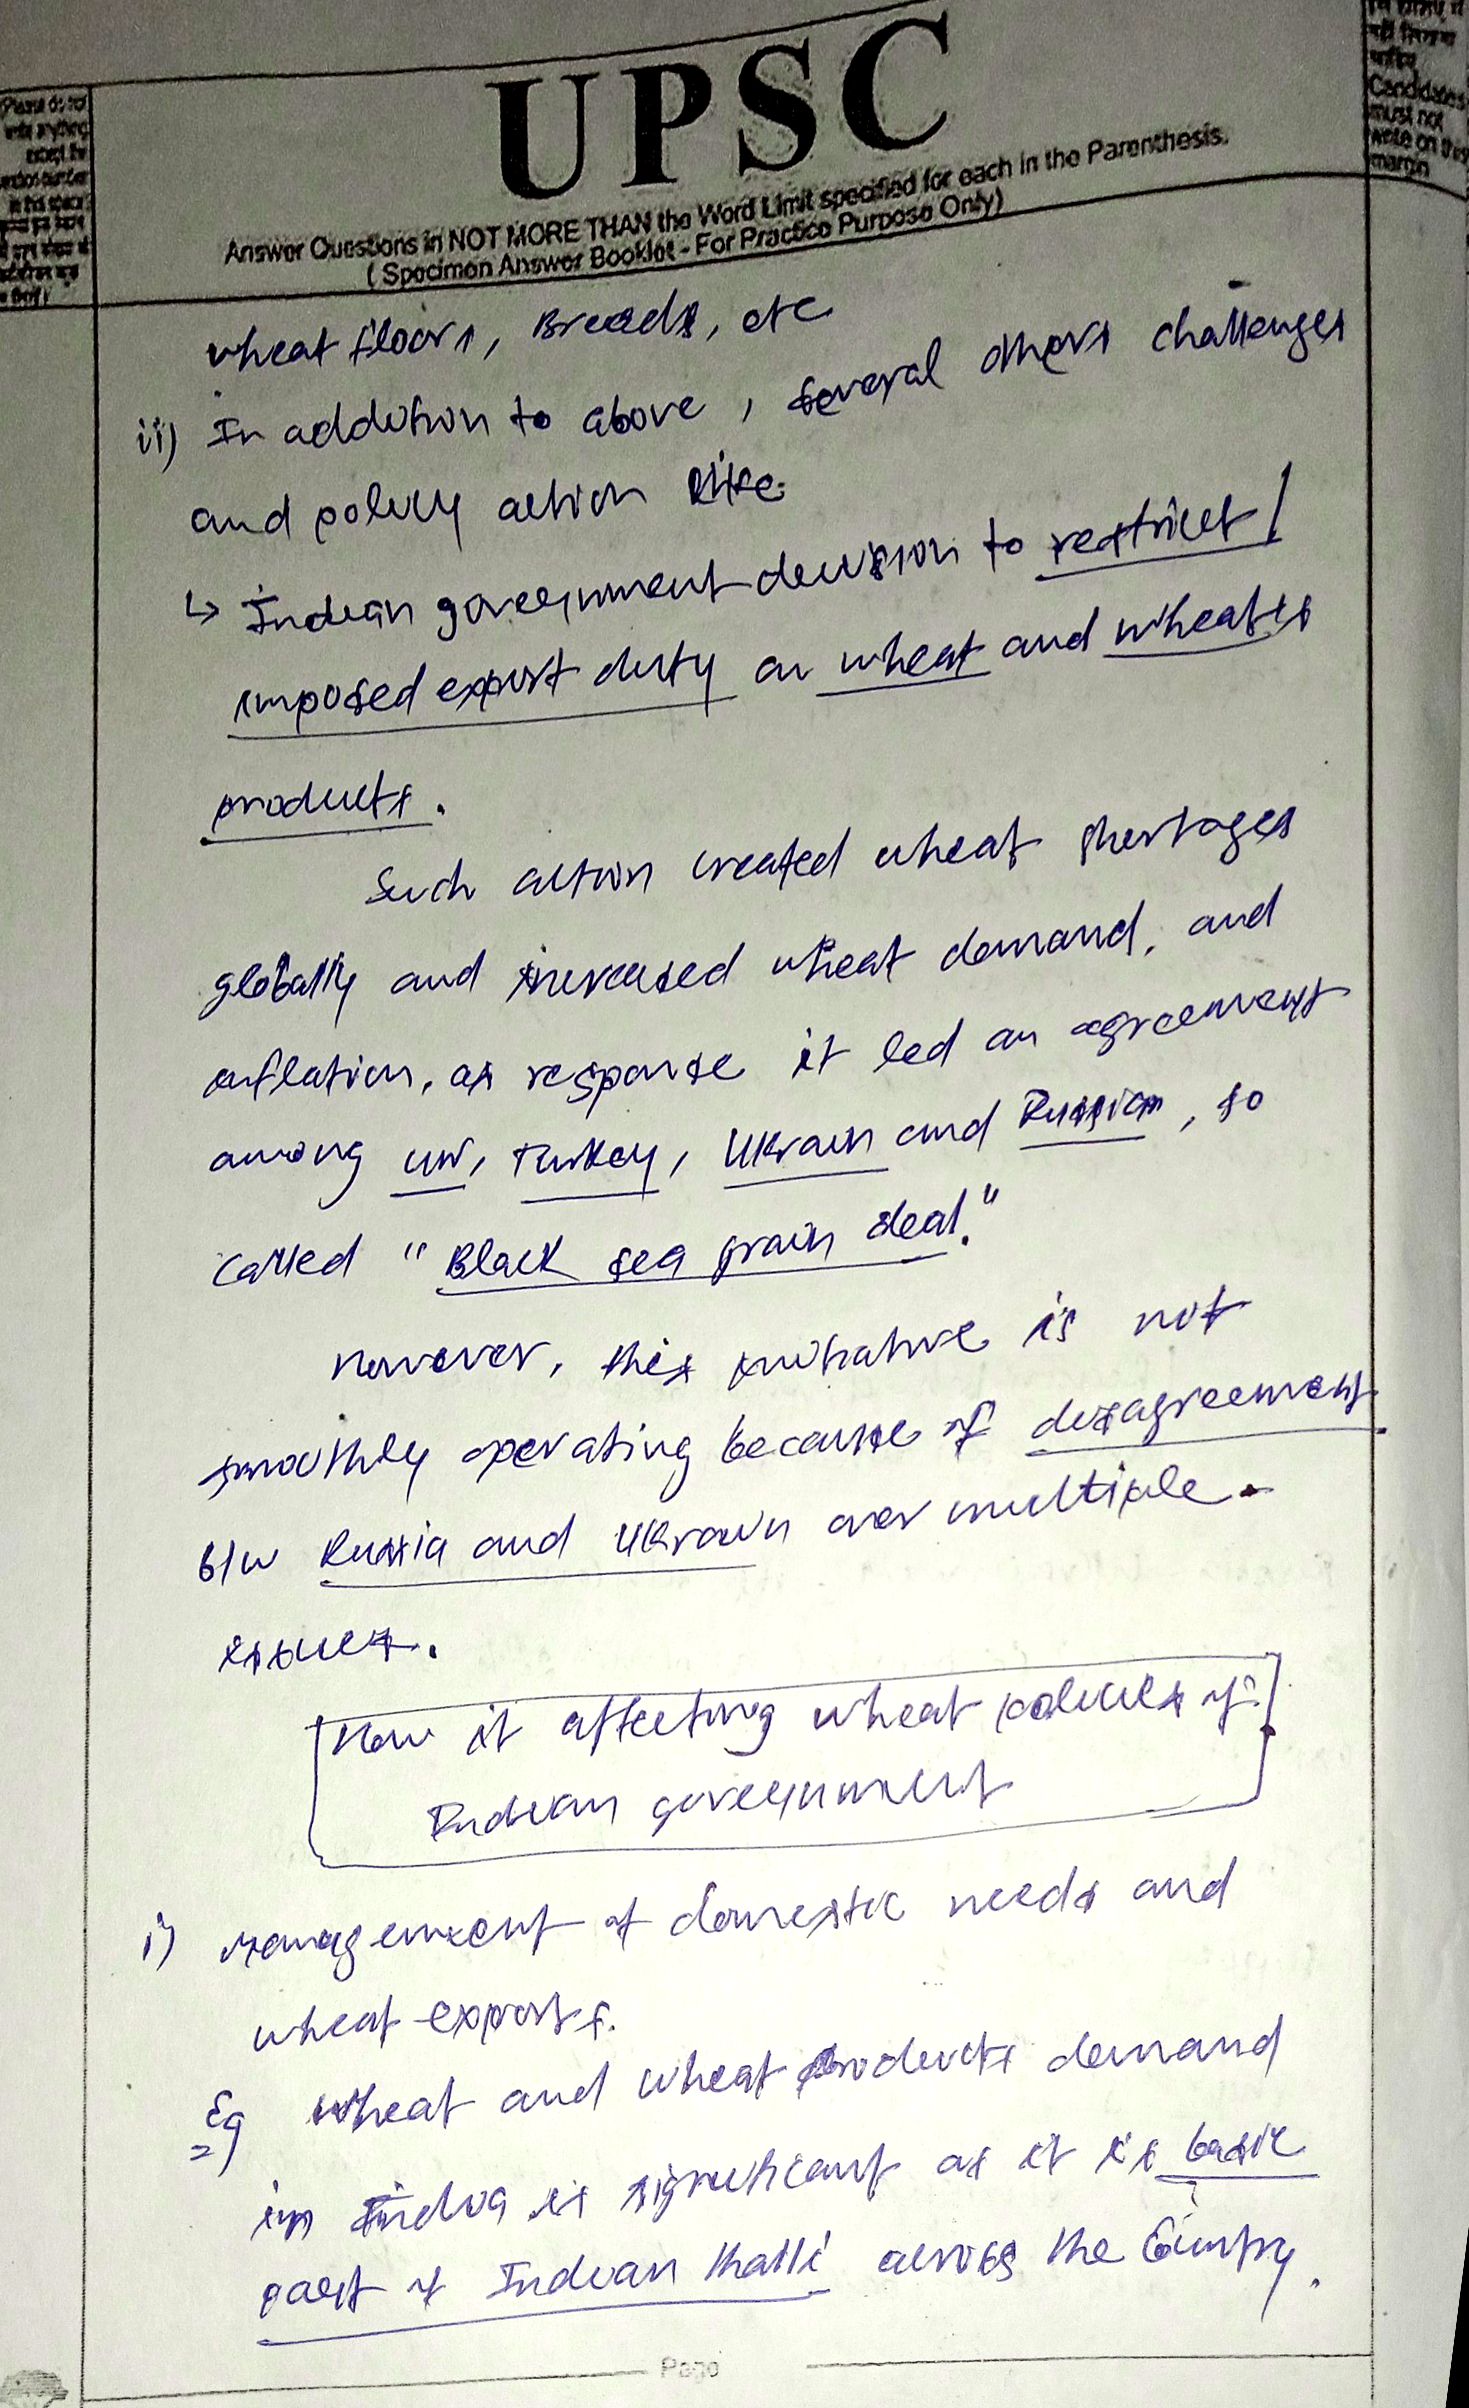 UPSC
Candidates
must not
write on this
margin
Please do not
write anything
except the
Answer Questions in NOT MORE THAN the Word Limit specified for each in the Parenthesis.
( Specimen Answer Booklet - For Practice Purpose Only)
wheat floors, Breads, etc
ii) In addition to above, several others challenges
and policy action like
↳ Indian government decision to restrict/
imposed export duty on wheat and wheats
products.
Such action created wheat shortages
globally and increased wheat demand, and
inflation, as response it led an agreement
among UN, Turkey, Ukrain and Russian, so
called "Black sea grain deal."
However, this initiative is not
smoothly operating because of disagreement
b/w Russia and Ukrain over multiple
issues.
How it affecting wheat policies of
Indian government
i) Management of domestic needs and
wheat exports.
Eg wheat and wheat products demand
in India is significant as it is basic
part of Indian thalli across the Country.
Page